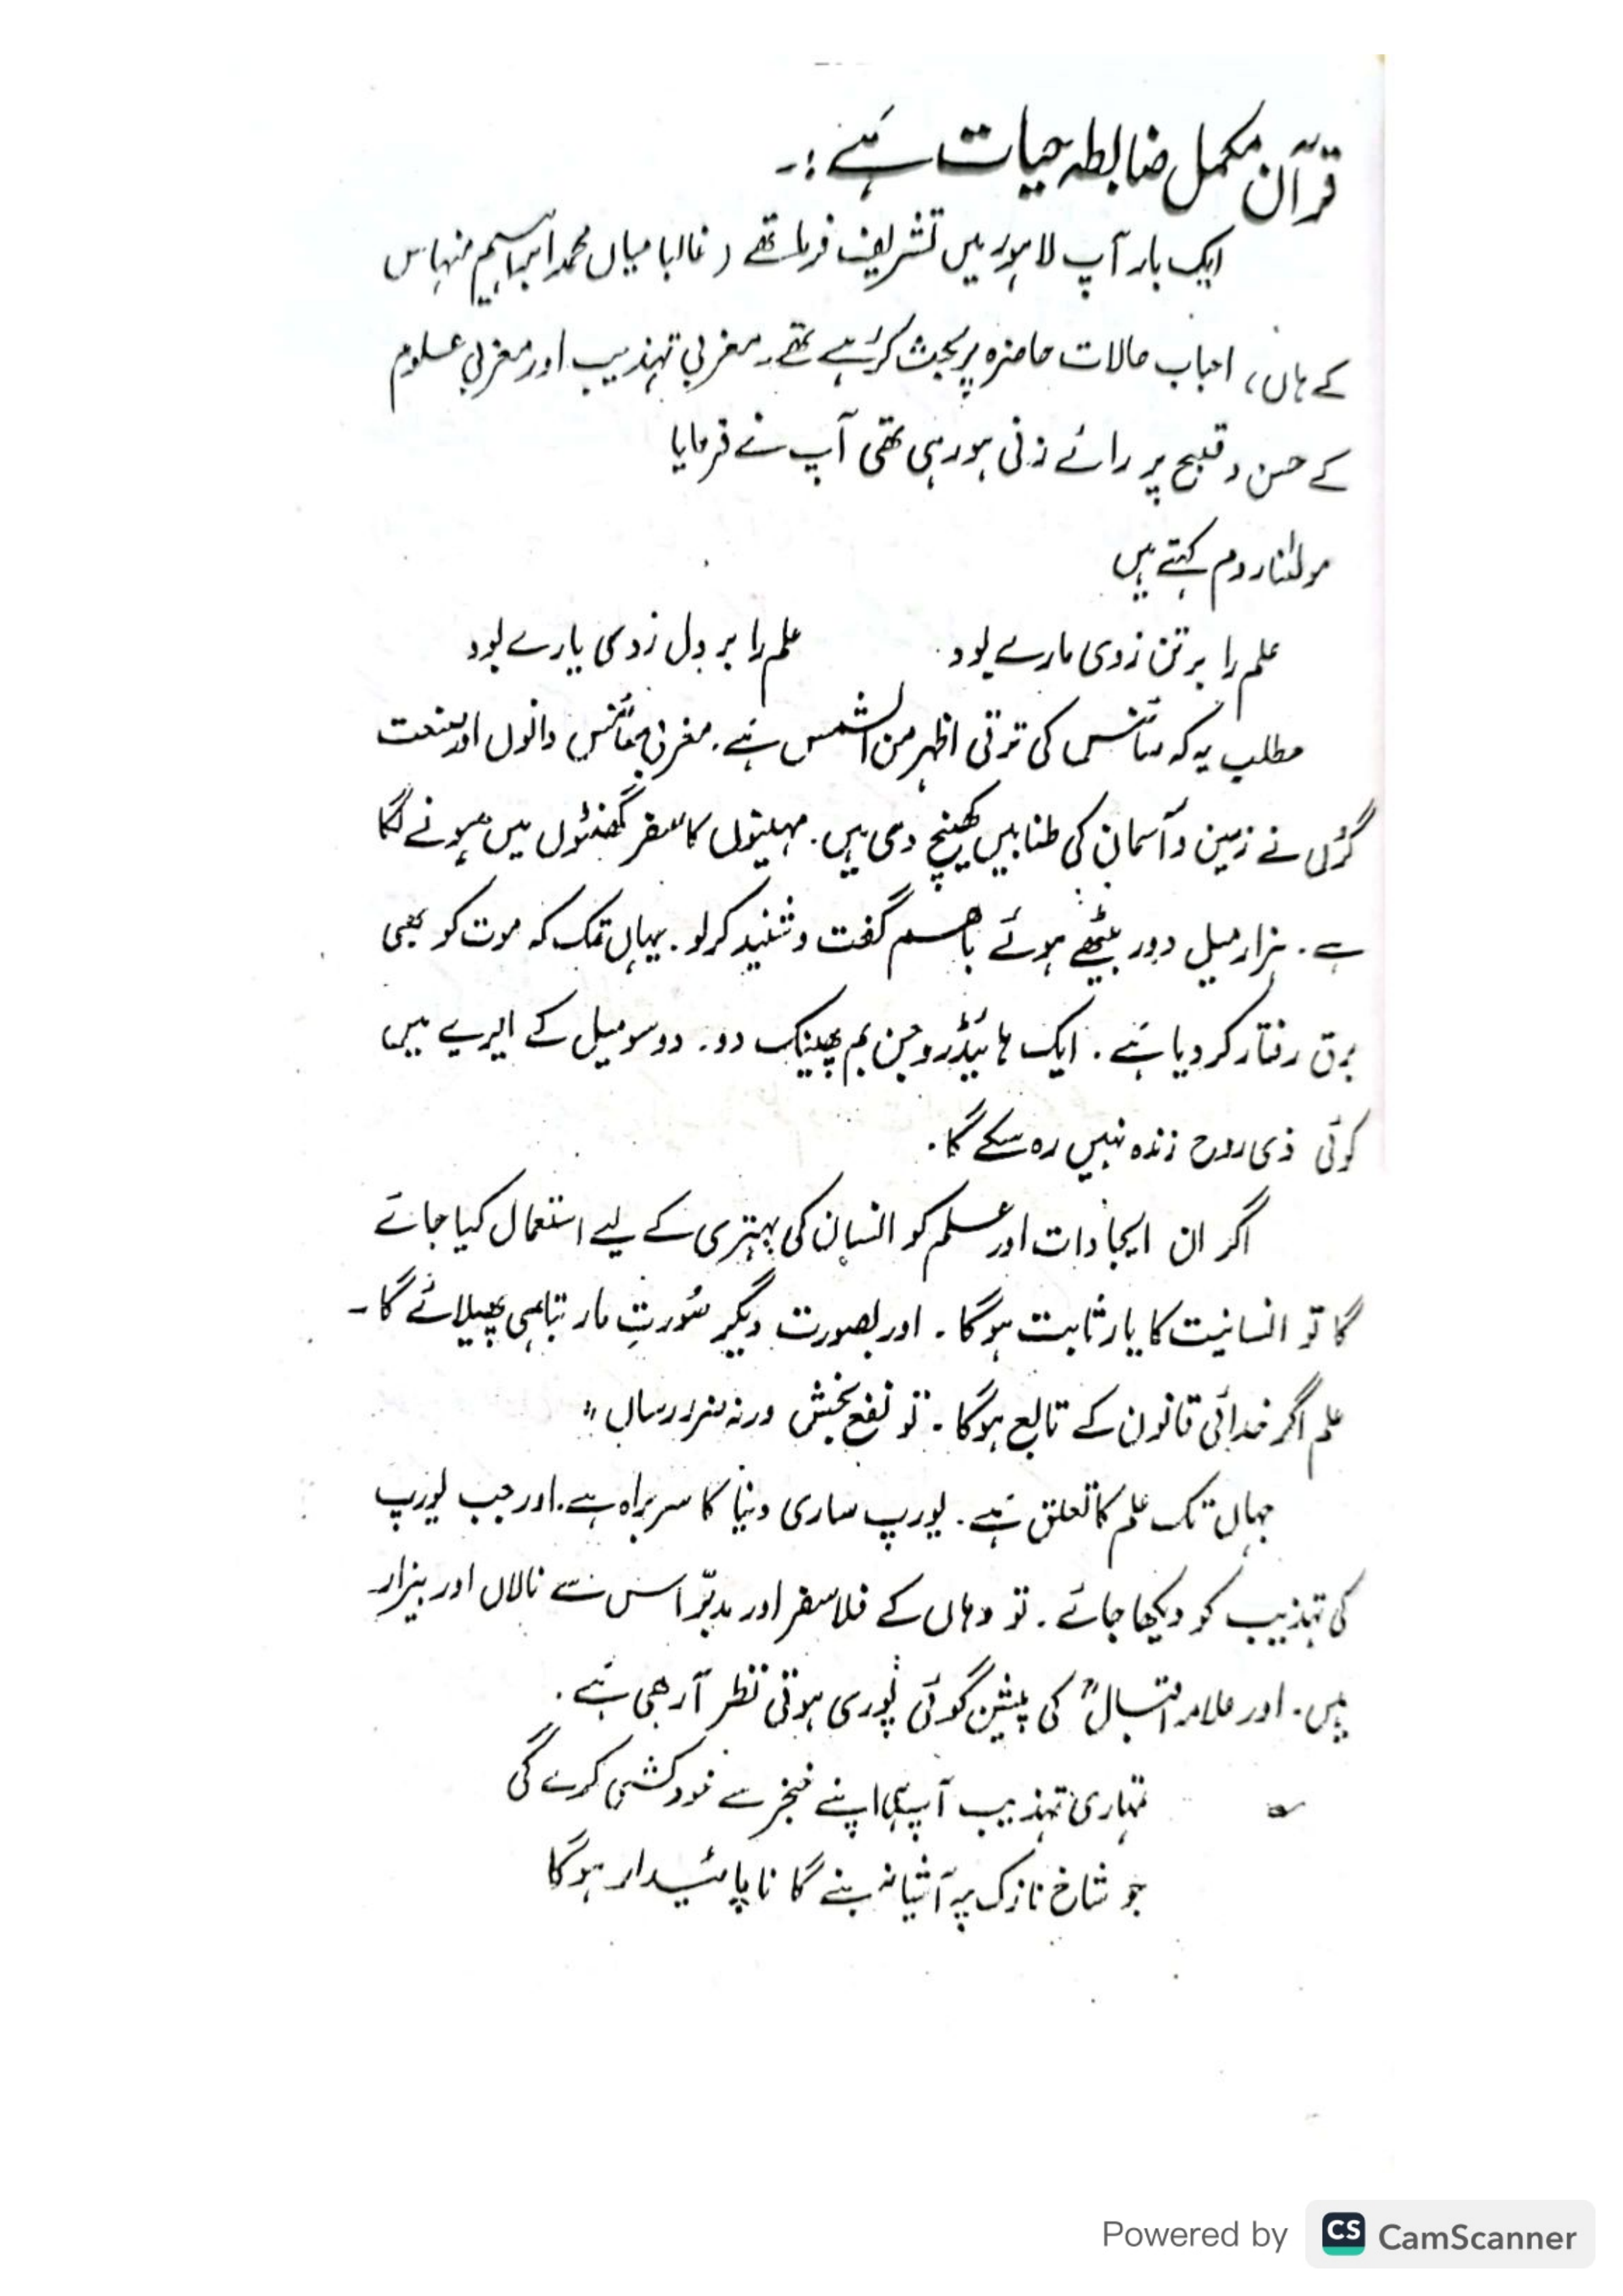 قرآن مکمل ضابطہ حیات ہَے :۔
ایک بار آپ لاہور میں تشریف فرما تھے ( غالبا میاں محمد ابراہیم منہاس
کے ہاں ، احباب حالات حاضرہ پر بحث کر رہے تھے۔ مغربی تہذیب اور مغربی علوم
کے حسن و قبیح پر رائے زنی ہو رہی تھی آپ نے فرمایا
مولٰنا روم کہتے ہیں
علم را بر تن زدی مارے بود. علم را بر دل زدی یارے بود
مطلب یہ کہ سائنس کی ترقی اظہر من الشمس ہَے. مغربی سائنس دانوں اور صنعت
گروں نے زمین و آسمان کی طنابیں کھینچ دی ہیں. مہینوں کا سفر گھنٹوں میں ہونے لگا
ہے. ہزار میل دور بیٹھے ہوئے باہم گفت و شنید کر لو. یہاں تک کہ موت کو بھی
برق رفتار کر دیا ہَے. ایک ہائیڈروجن بم پھینک دو. دو سو میل کے ایریے میں
کوئی ذی روح زندہ نہیں رہ سکے گا.
اگر ان ایجادات اور علم کو انسان کی بہتری کے لیے استعمال کیا جائے
گا تو انسانیت کا یار ثابت ہوگا. اور بصورت دیگر صُورتِ مار تباہی پھیلائے گا۔
علم اگر خدائی قانون کے تابع ہوگا. تو نفع بخش ورنہ ضرر رساں "
جہاں تک علم کا تعلق ہَے. یورپ ساری دنیا کا سربراہ ہے. اور جب یورپ
کی تہذیب کو دیکھا جائے. تو وہاں کے فلاسفر اور مدبّر اس سے نالاں اور بیزار
ہیں. اور علامہ اقبالؒ کی پیشن گوئی پُوری ہوتی نظر آ رہی ہَے.
؎ تمہاری تہذیب آپ ہی اپنے خنجر سے خودکشی کرے گی
جو شاخ نازک پہ آشیانہ بنے گا ناپائیدار ہوگا
Powered by CS CamScanner